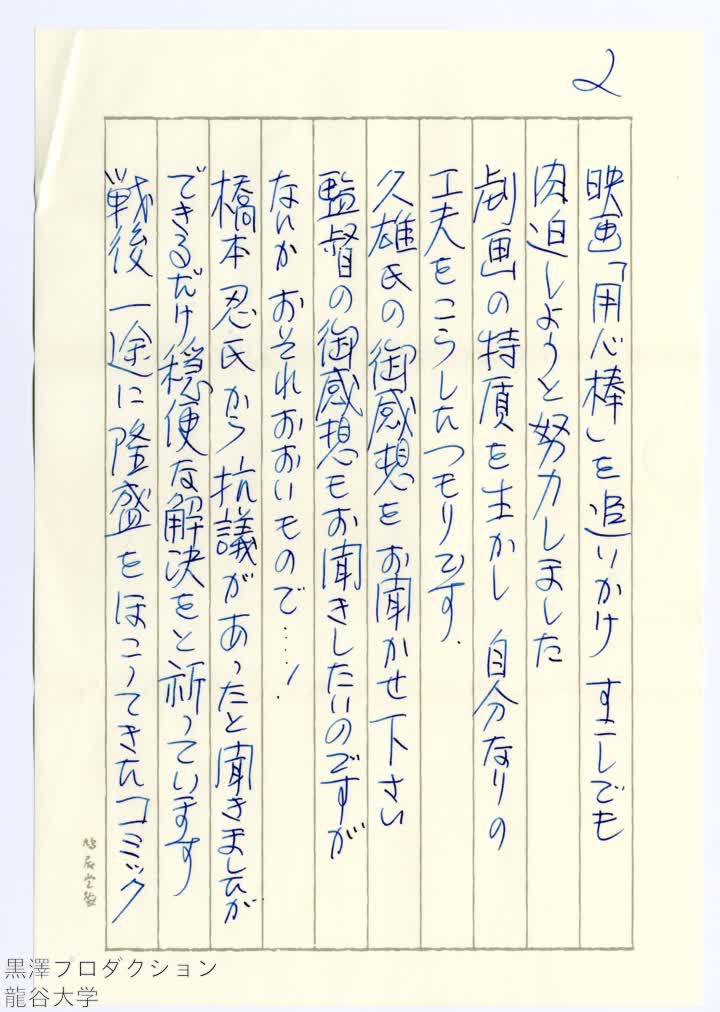 2
映画「用心棒」を追いかけ すこしでも
肉迫しようと努力しました
劇画の特質を生かし 自分なりの
工夫をこらしたつもりです.
久雄氏の御感想を お聞かせ下さい
監督の御感想もお聞きしたいのですが
ないか おそれおおいもので……!
橋本忍氏から抗議があったと聞きましたが
できるだけ穏便な解決をと祈っています
戦後 一途に隆盛をほこってきたコミック
鳩居堂製
黒澤プロダクション
龍谷大学